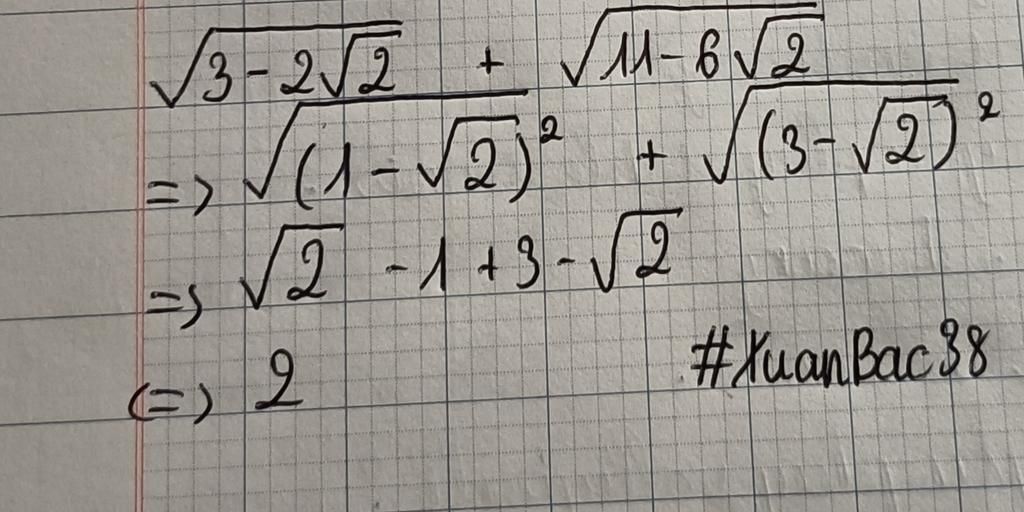 √(3 - 2√2) + √(11 - 6√2)
=> √((1 - √2)²) + √((3 - √2)²)
=> √2 - 1 + 3 - √2
<=> 2
#XuanBac38